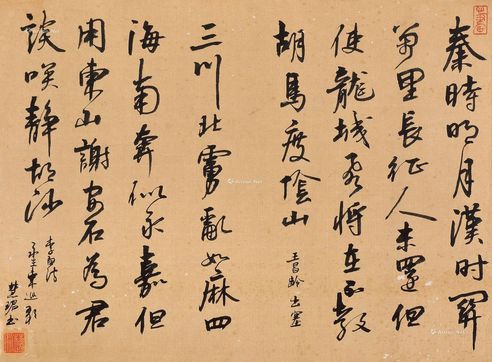 秦時明月漢時關
萬里長征人未還但
使龍城飛將在不教
胡馬度陰山
王昌齡出塞
三川北虜亂如麻四
海南奔似永嘉但
用東山謝安石為君
談笑靜胡沙
李白詩
永王東巡歌
書